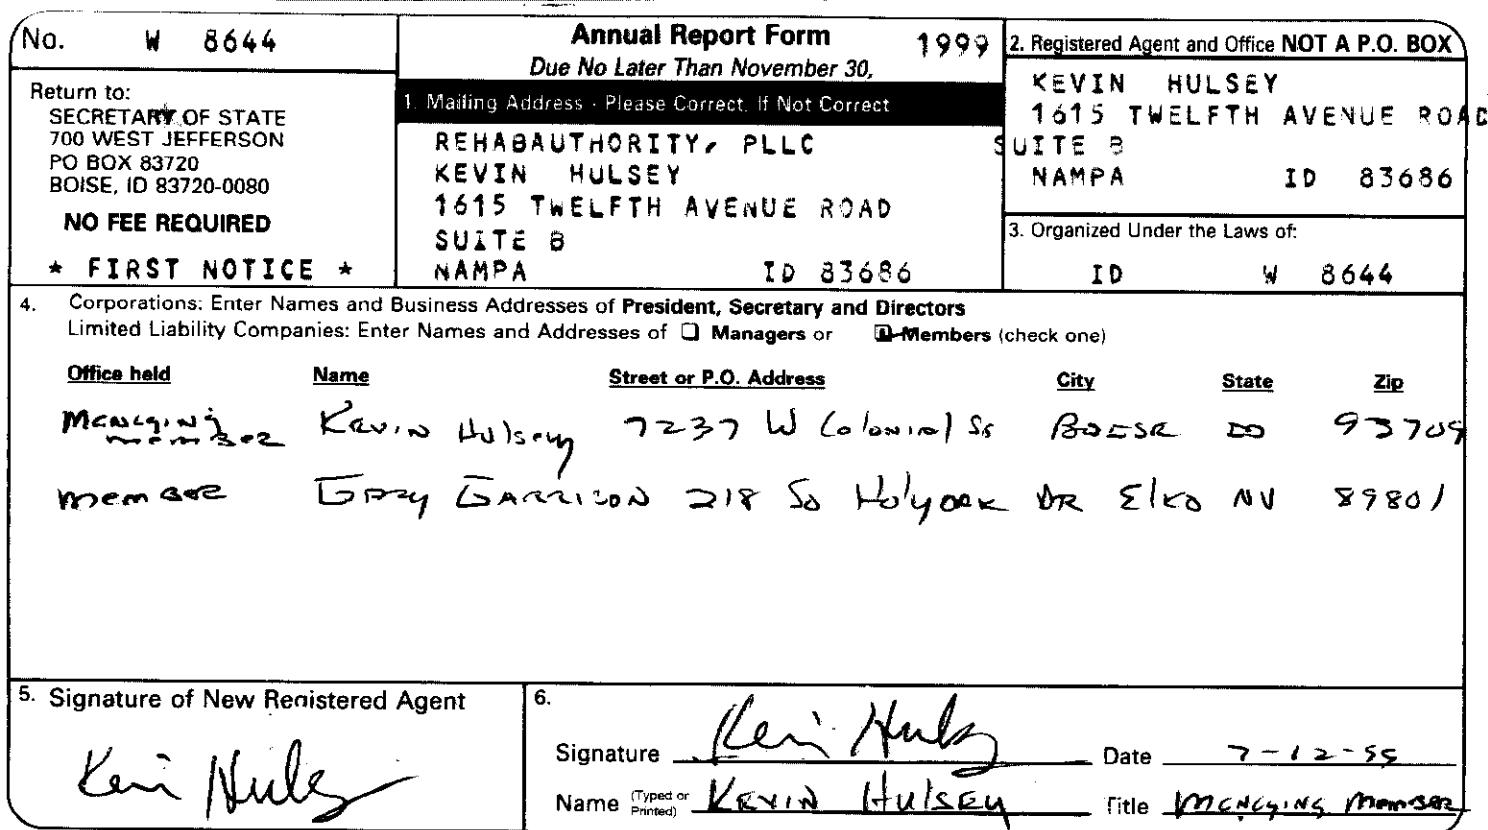 No. W 8644
Annual Report Form 1999
Due No Later Than November 30,
Return to:
SECRETARY OF STATE
700 WEST JEFFERSON
PO BOX 83720
BOISE, ID 83720-0080
NO FEE REQUIRED
* FIRST NOTICE *
1. Mailing Address - Please Correct, If Not Correct
REHABAUTHORITY, PLLC
KEVIN HULSEY
1615 TWELFTH AVENUE ROAD
SUITE B
NAMPA ID 83686
2. Registered Agent and Office NOT A P.O. BOX
KEVIN HULSEY
1615 TWELFTH AVENUE ROAD
SUITE B
NAMPA ID 83686
3. Organized Under the Laws of:
ID W 8644
4. Corporations: Enter Names and Business Addresses of President, Secretary and Directors
Limited Liability Companies: Enter Names and Addresses of Managers or Members (check one)
Office held Name Street or P.O. Address City State Zip
Managing member Kevin Hulsey 7237 W Colonial BOISE ID 93709
member Gary GARRISON 218 So Holyoak DR Elko NV 89801
5. Signature of New Registered Agent
Kevin Hulsey
6.
Signature Kevin Hulsey Date 7-12-99
Name (Typed or Printed) KEVIN HULSEY Title Managing Member